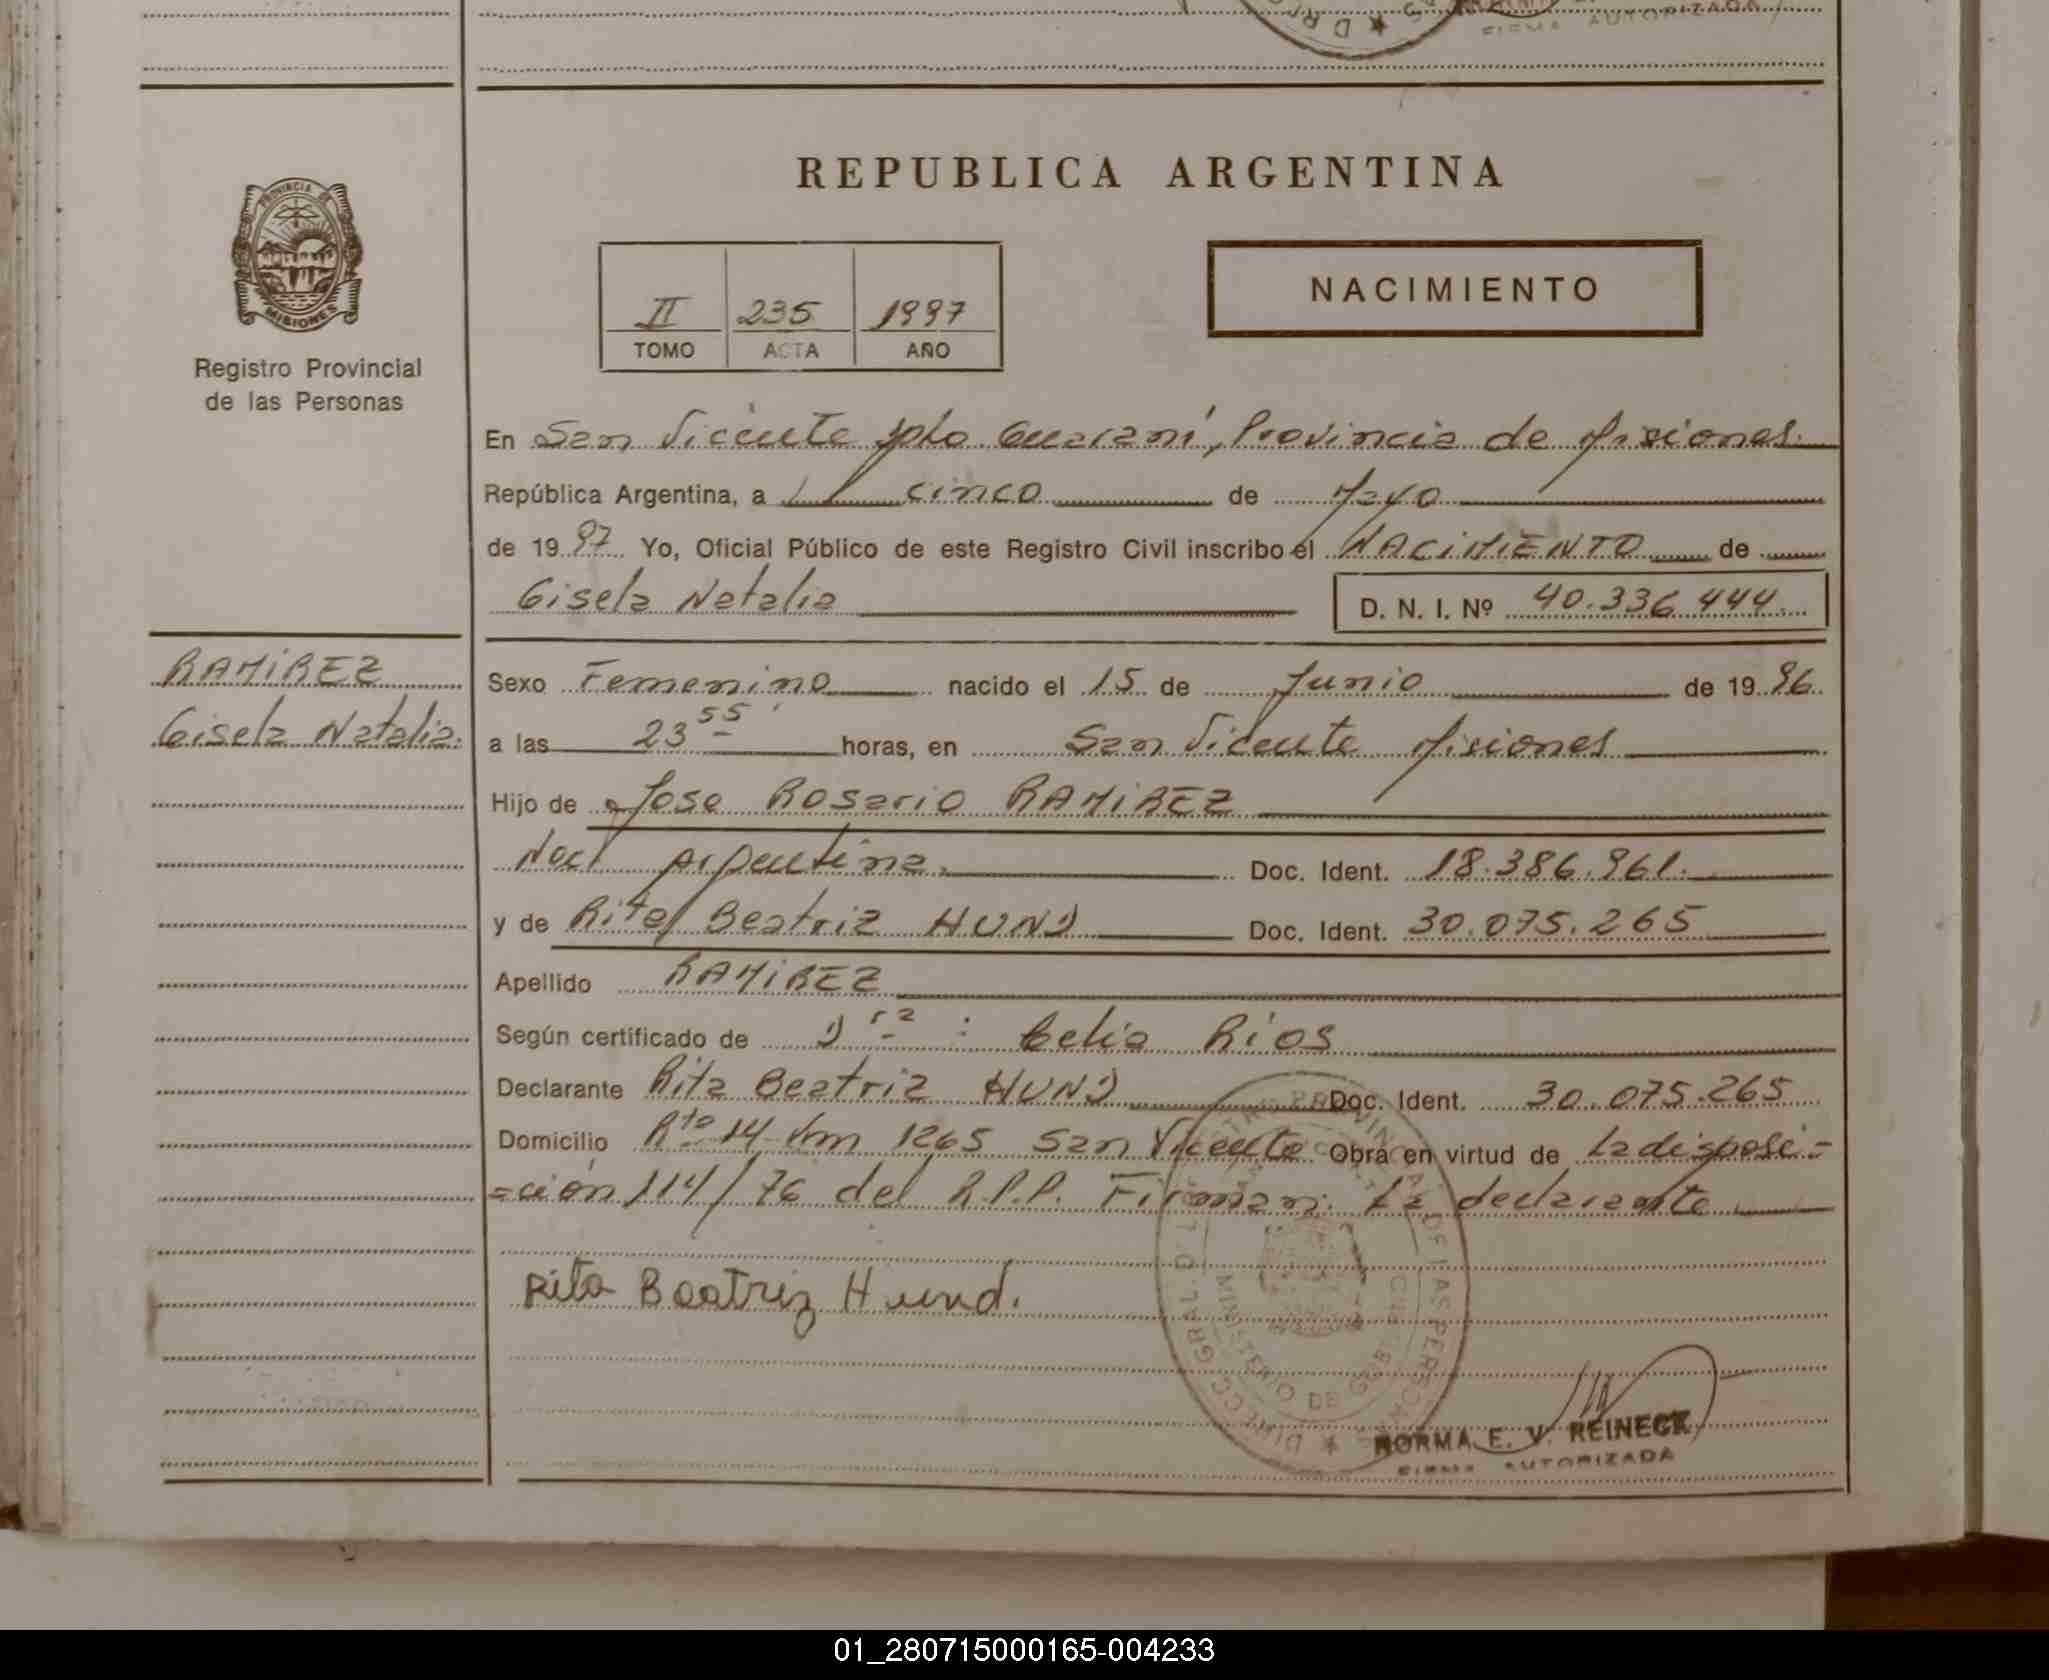 FIRMA AUTORIZADA
PROVINCIA DE
MISIONES
Registro Provincial
de las Personas
REPUBLICA ARGENTINA
II 235 1997
TOMO ACTA AÑO
NACIMIENTO
En San Vicente Dpto Guaraní, Provincia de Misiones.
República Argentina, a cinco de Mayo
de 1997 Yo, Oficial Público de este Registro Civil inscribo el NACIMIENTO de
Gisela Natalia D. N. I. Nº 40.336.444.
RAMIREZ
Gisela Natalia.
Sexo Femenino nacido el 15 de Junio de 1996.
a las 23 55 horas, en San Vicente Misiones
Hijo de Jose Rosario RAMIREZ
Nac. Argentina. Doc. Ident. 18.386.961.
y de Rita Beatriz HUND Doc. Ident. 30.075.265
Apellido RAMIREZ
Según certificado de Dra: Celia Rios
Declarante Rita Beatriz HUND Doc. Ident. 30.075.265
Domicilio Rta 14 km 1265 San Vicente Obra en virtud de La disposi=
=ción 114/76 del R.P.P. Firman: La declarante
Rita Beatriz Hund.
NORMA E. V. REINECK
FIRMA AUTORIZADA
01_280715000165-004233